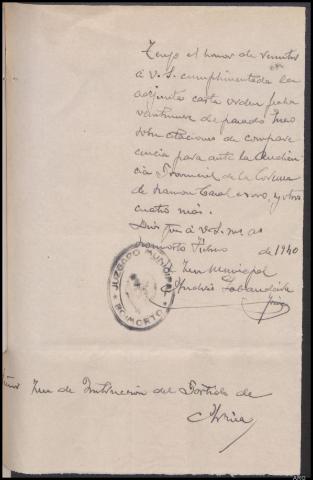 Tengo el honor de remitir
á V. S. cumplimentada la
adjunta carta orden fecha
veintinueve de pasado Enero
sobre citaciones de compare
cencia para ante la Audien
cia Provincial de la Coruña
de Ramon y otros
cuatro más.
Dios gue á V. S. ms as
Boimorto Febrero de 1940
El Juez Municipal
Andrés
JUZGADO MUNICIPAL
BOIMORTO
Señor Juez de Instrucción del Partido de
Arzúa